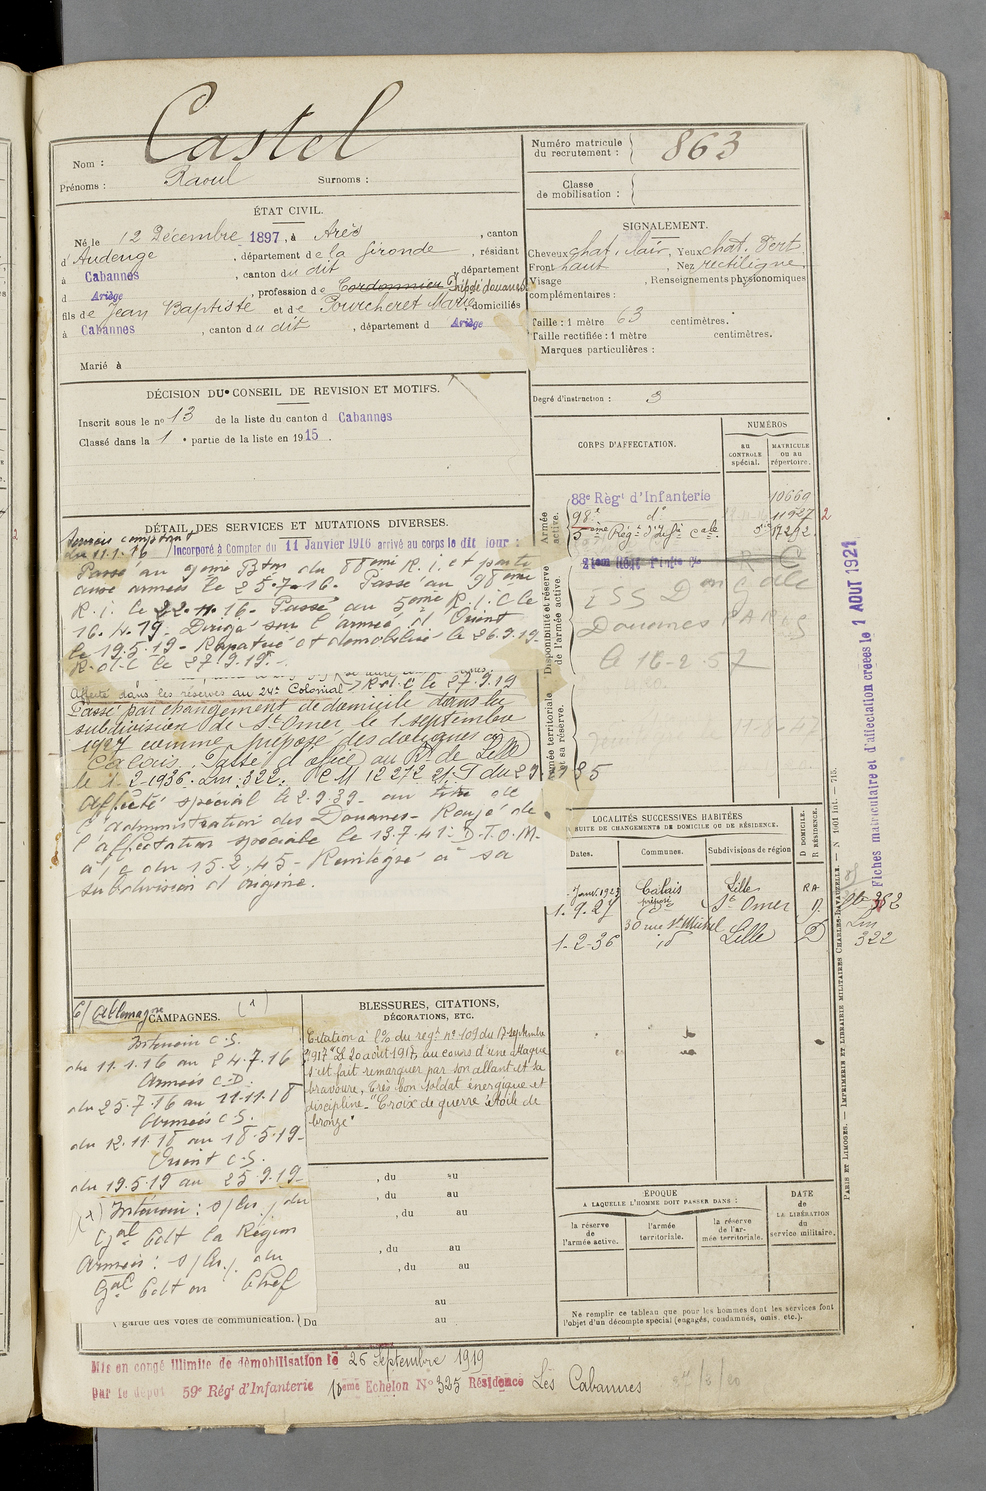 Castel
Nom :
Prénoms : Raoul Surnoms :
Numéro matricule
du recrutement : 863
Classe
de mobilisation :
ÉTAT CIVIL.
Né le 12 Décembre 1897, à Arès, canton
d'Audenge, département de la Gironde, résidant
à Cabannes, canton du dit, département
d Ariège, profession de Cordonnier Préposé douanes
fils de Jean Baptiste et de Pourcheret Marie, domiciliés
à Cabannes, canton du dit, département d Ariège
Marié à
SIGNALEMENT.
Cheveux chat. clair, Yeux chat. vert
Front haut, Nez rectiligne
Visage, Renseignements physionomiques
complémentaires :
Taille : 1 mètre 63 centimètres.
Taille rectifiée : 1 mètre centimètres.
Marques particulières :
Degré d'instruction : 3
DÉCISION DU CONSEIL DE REVISION ET MOTIFS.
Inscrit sous le no 13 de la liste du canton d Cabannes
Classé dans la 1e partie de la liste en 1915.
CORPS D'AFFECTATION.
NUMÉROS
AU CONTROLE spécial.
MATRICULE ou au répertoire.
Armée active.
88e Régt d'Infanterie 10669
98e do 11927 2
5ème Régt d'Infie Cale 17292
21eme Régt Inftie Cle
R C
Disponibilité et réserve de l'armée active.
Douanes PARIS
le 16-2-57
Armée territoriale et sa réserve.
DÉTAIL DES SERVICES ET MUTATIONS DIVERSES.
du 11.1.16
Incorporé à Compter du 11 Janvier 1916 arrivé au corps le dit jour :
Passé au 9eme Bton du 88eme R.I. et parti
aux armées le 25-7-16. Passé au 98eme
R.I. le 22.11.16. Passé au 5eme R.I.C le
16.4.19. Dirigé sur l'armée d'Orient
le 19.5.19. Rapatrié et démobilisé le 26.9.19.
R.d.C le 27.9.19.
Affecté dans les réserves au 24e Colonial R.d.C le 27.9.19
Passé par changement de domicile dans la
subdivision de St Omer le 1 septembre
1927 comme préposé des douanes à
Calais. Passé d'office au Bu de Lille
le 1.2.1936. Lm : 322.
Affecté spécial le 2.9.39 au titre de
l'administration des Douanes. Rayé de
l'affectation spéciale le 13.7.41. D.T.O.M.
à/c du 15.2.45. Réintégré à sa
subdivision d'origine.
LOCALITÉS SUCCESSIVES HABITÉES
PAR SUITE DE CHANGEMENTS DE DOMICILE OU DE RÉSIDENCE.
Dates. Communes. Subdivisions de région
D DOMICILE.
R RÉSIDENCE.
Janv. 1923 Calais préposé Lille RA
1.9.27 do St Omer D.
30 rue St Michel
1-2-36 id Lille D
Lm
322
C/ Allemagne (1)
CAMPAGNES.
Intérieur C.S.
du 11.1.16 au 24.7.16
Armées C.D.
du 25.7.16 au 11.11.18
Armées C.S.
du 12.11.18 au 18.5.19
Orient C.S.
du 19.5.19 au 25.9.19
(1) Intérieur : s/ du
Gal Cdt la Région
Armées : s/ du
Gal Cdt en Chef
garde des voies de communication. Du au
BLESSURES, CITATIONS,
DÉCORATIONS, ETC.
Citation à l'O. du régt no 109 du 17 septembre
1917 "Le 20 août 1917, au cours d'une attaque
s'est fait remarquer par son allant et sa
bravoure, très bon soldat énergique et
discipliné." Croix de guerre étoile de
bronze
, du au
, du au
, du au
, du au
, du au
au
ÉPOQUE
A LAQUELLE L'HOMME DOIT PASSER DANS :
la réserve de l'armée active.
l'armée territoriale.
la réserve de l'armée territoriale.
DATE de LA LIBÉRATION du service militaire.
Ne remplir ce tableau que pour les hommes dont les services font
l'objet d'un décompte spécial (engagés, condamnés, omis, etc.).
Mis en congé illimité de démobilisation le 26 Septembre 1919
par le dépôt 59e Régt d'Infanterie 10eme Echelon No 325 Résidence Les Cabannes
27/2/20
Fiches matriculaire et d'affectation créées le 1 AOUT 1921
PARIS ET LIMOGES. — IMPRIMERIE ET LIBRAIRIE MILITAIRES CHARLES-LAVAUZELLE. — N 1601 int. — 715.